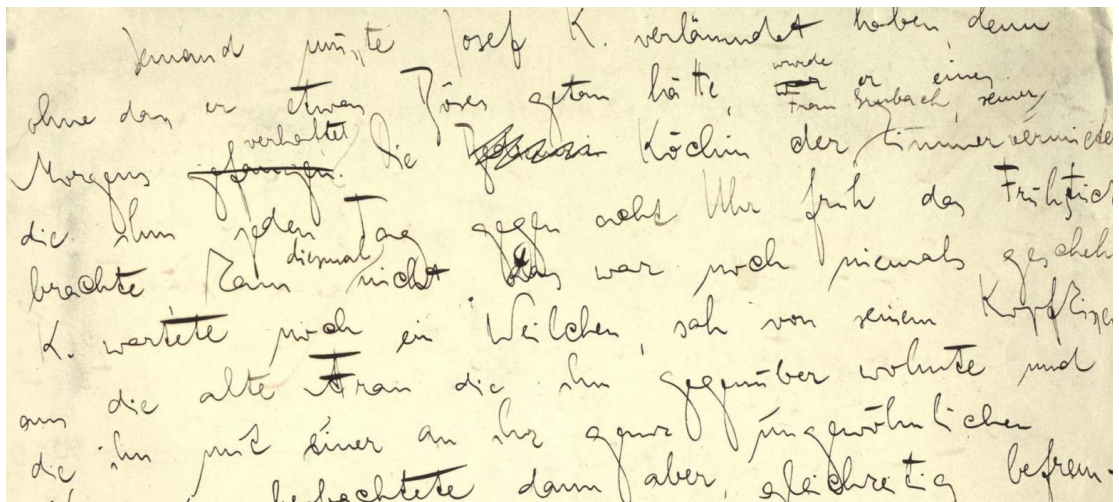 Jemand mußte Josef K. verläumdet haben, denn
ohne daß er etwas Böses getan hätte, war wurde er eines
Morgens gefangen verhaftet. Die Köchin der Frau Grubach, seiner Zimmervermieter
die ihm jeden Tag gegen acht Uhr früh das Frühstück
brachte kam diesmal nicht das war noch niemals gescheh
K. wartete noch ein Weilchen, sah von seinem Kopfkissen
aus die alte Frau die ihm gegenüber wohnte und
die ihn mit einer an ihr ganz ungewöhnlichen
beobachtete dann aber, gleichzeitig befrem-